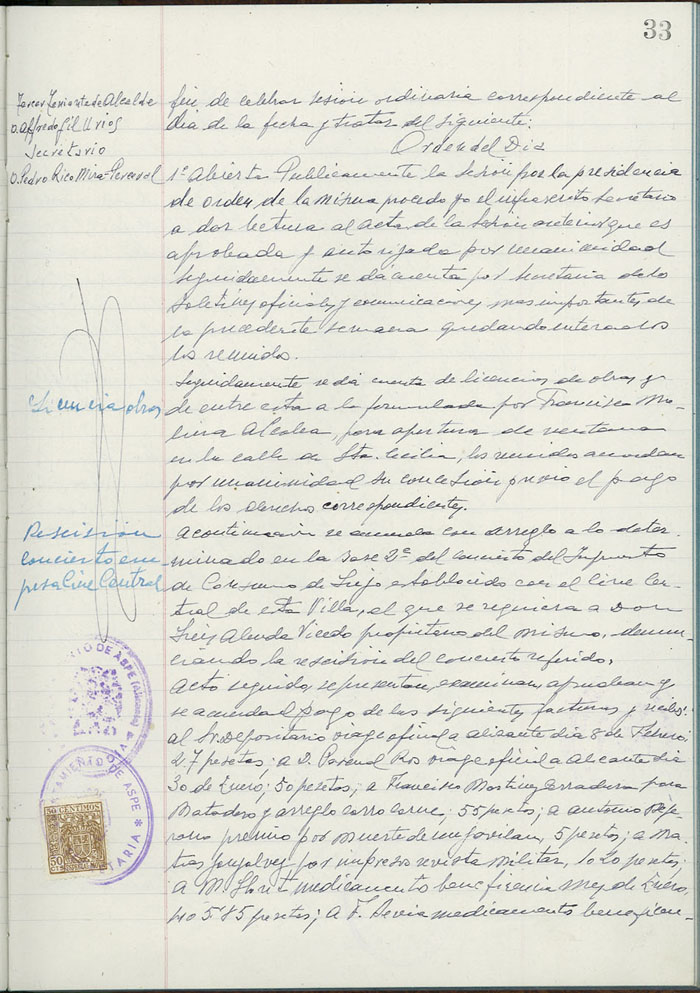 33
Tercer Teniente de Alcalde
D. Alfredo Gil Urios
Secretario
D. Pedro Rico Mira-Perceval
fin de celebrar sesión ordinaria correspondiente al
día de la fecha y tratar del siguiente:
Orden del Dia
1º Abierta Publicamente la Sesión por la presidencia
de orden de la misma procedo yo el infrascrito Secretario
a dar lectura al acta de la Sesión anterior que es
aprobada y autorizada por unanimidad
Seguidamente se dá cuenta por Secretaria de los
Boletines oficiales y comunicaciones mas importantes de
la precedente semana quedando enterados
los reunidos.
Licencia obras
Seguidamente se dá cuenta de licencias de obras y
de entre esta a la formulada por Francisco Mo-
lina Alcolea, para apertura de ventana
en la calle de Sta. Cecilia; los reunidos acuerdan
por unanimidad su concesión previo el pago
de los derechos correspondientes.
Rescisión
concierto em-
presa Cine Central
Acontinuación se acuerda con arreglo a lo deter-
minado en la base 2ª del concierto del Impuesto
de Consumo de Lujo establecido con el Cine Cen-
tral de esta Villa, el que se requiera a Don
Luis Almda Vicedo propietario del mismo, denun-
ciando la rescisión del concierto referido.
Acto seguido, se presentan, examinan, aprueban y
se acuerda el pago de las siguientes facturas y recibos:
al Sr. Depositario viage oficial a Alicante dia 8 de Febrero
27 pesetas; a D. Pascual Ros viage oficial a Alicante dia
30 de Enero, 50 pesetas; a Francisco Martinez cerradura para
Matadero y arreglo carro carne, 55 pesetas; a Antonio
premio por muerte de un gavilan, 5 pesetas; a Ma-
tias Gonzalvez por impresos revista Militar, 10 20 pesetas;
a M. Lloret medicamento beneficencia mes de Enero,
5 85 pesetas; a F. medicamento beneficen-
AYUNTAMIENTO DE ASPE (Alicante)
AYUNTAMIENTO DE ASPE * SECRETARIA *
50 CENTIMOS
50